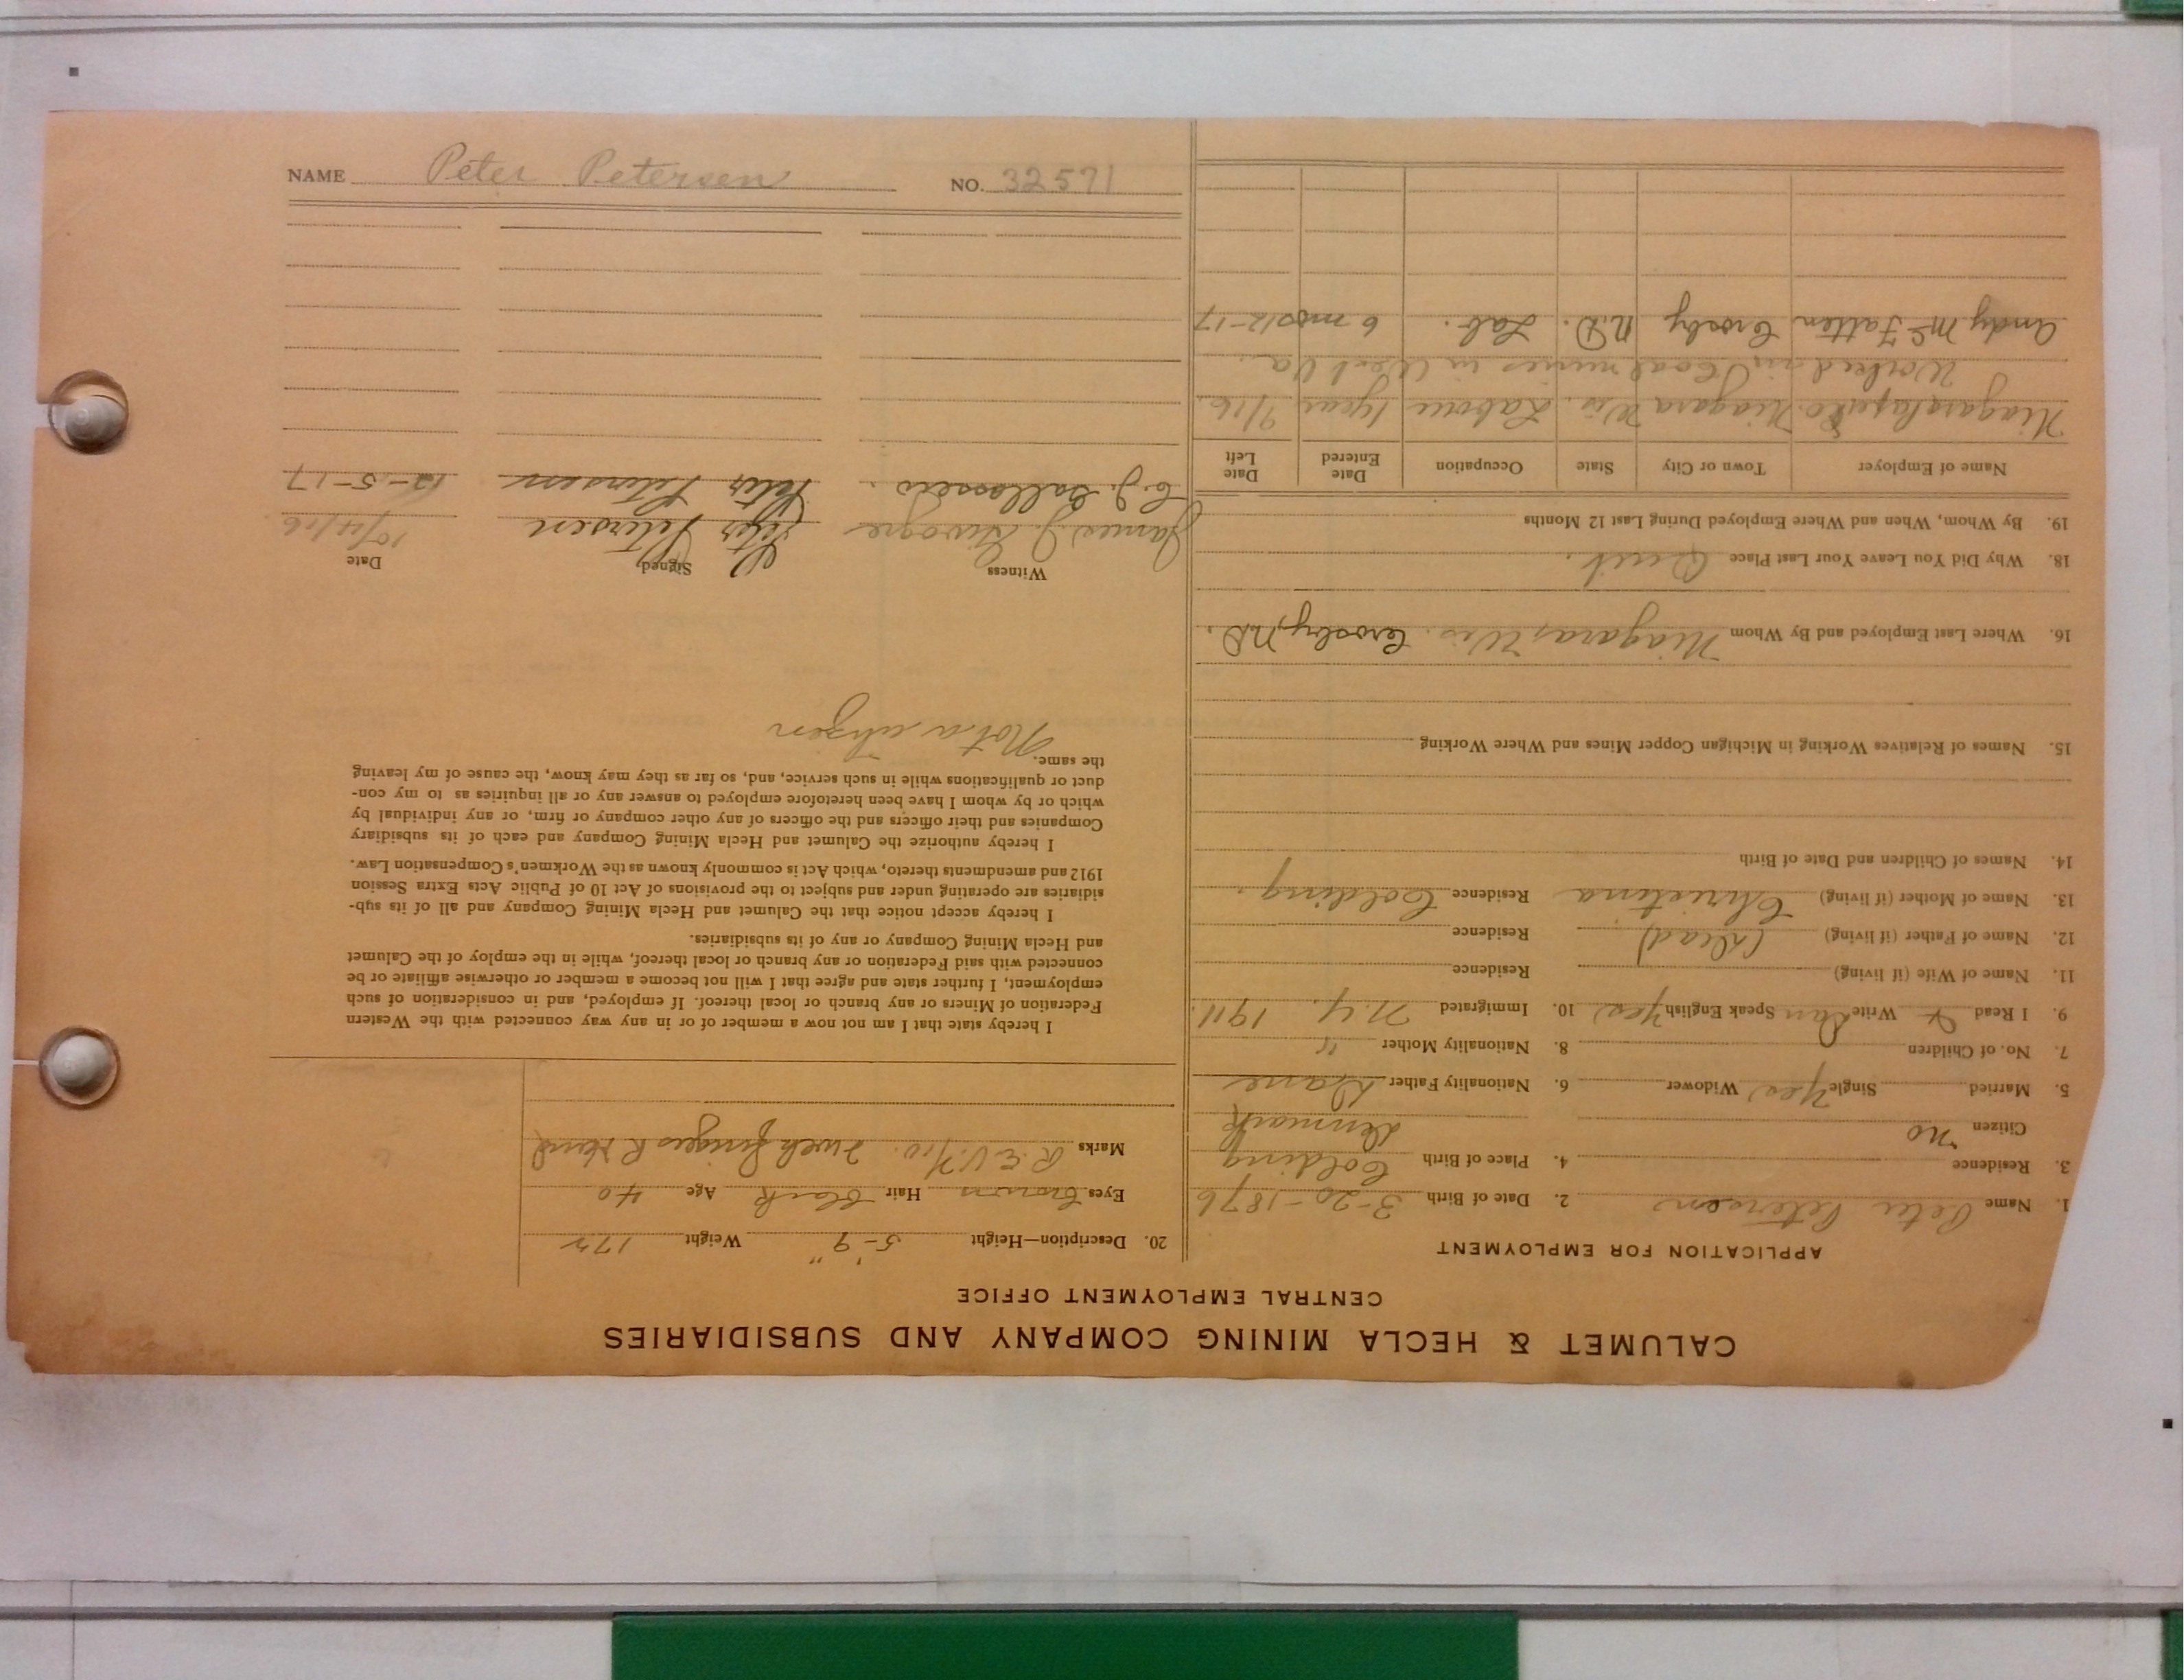 CALUMET & HECLA MINING COMPANY AND SUBSIDIARIES
CENTRAL EMPLOYMENT OFFICE
APPLICATION FOR EMPLOYMENT
1. Name Peter Petersen 2. Date of Birth 3-20-1876
3. Residence 4. Place of Birth Colding
Citizen no Denmark
5. Married Single Yes Widower 6. Nationality Father Dane
7. No. of Children 8. Nationality Mother "
9. I Read & Write Dan Speak English Yes 10. Immigrated N.Y. 1911.
11. Name of Wife (if living) Residence
12. Name of Father (if living) (dead) Residence
13. Name of Mother (if living) Christina Residence Colding.
14. Names of Children and Date of Birth
15. Names of Relatives Working in Michigan Copper Mines and Where Working
16. Where Last Employed and By Whom Niagara, Wis. Crosby, N.D.
18. Why Did You Leave Your Last Place Quit.
19. By Whom, When and Where Employed During Last 12 Months
Name of Employer Town or City State Occupation Date Entered Date Left
Niagara Paper Co. Niagara Wis. Laborer 1 year 9/16.
Worked in Coal mines in West Va.
Andy McFatten Crosby N.D. Lab. 6 mos 12-17
20. Description—Height 5'-9" Weight 172
Eyes brown Hair black Age 40
Marks R.E.V. 7/10. Fingers R Hand
I hereby state that I am not now a member of or in any way connected with the Western
Federation of Miners or any branch or local thereof. If employed, and in consideration of such
employment, I further state and agree that I will not become a member or otherwise affiliate or be
connected with said Federation or any branch or local thereof, while in the employ of the Calumet
and Hecla Mining Company or any of its subsidiaries.
I hereby accept notice that the Calumet and Hecla Mining Company and all of its sub-
sidiaries are operating under and subject to the provisions of Act 10 of Public Acts Extra Session
1912 and amendments thereto, which Act is commonly known as the Workmen's Compensation Law.
I hereby authorize the Calumet and Hecla Mining Company and each of its subsidiary
Companies and their officers and the officers of any other company or firm, or any individual by
which or by whom I have been heretofore employed to answer any or all inquiries as to my con-
duct or qualifications while in such service, and, so far as they may know, the cause of my leaving
the same.
Not a citizen
Witness Signed Date
James J. Peter Petersen 10/4/16
C.J. Peter Petersen 12-5-17
NAME Peter Petersen NO. 32571